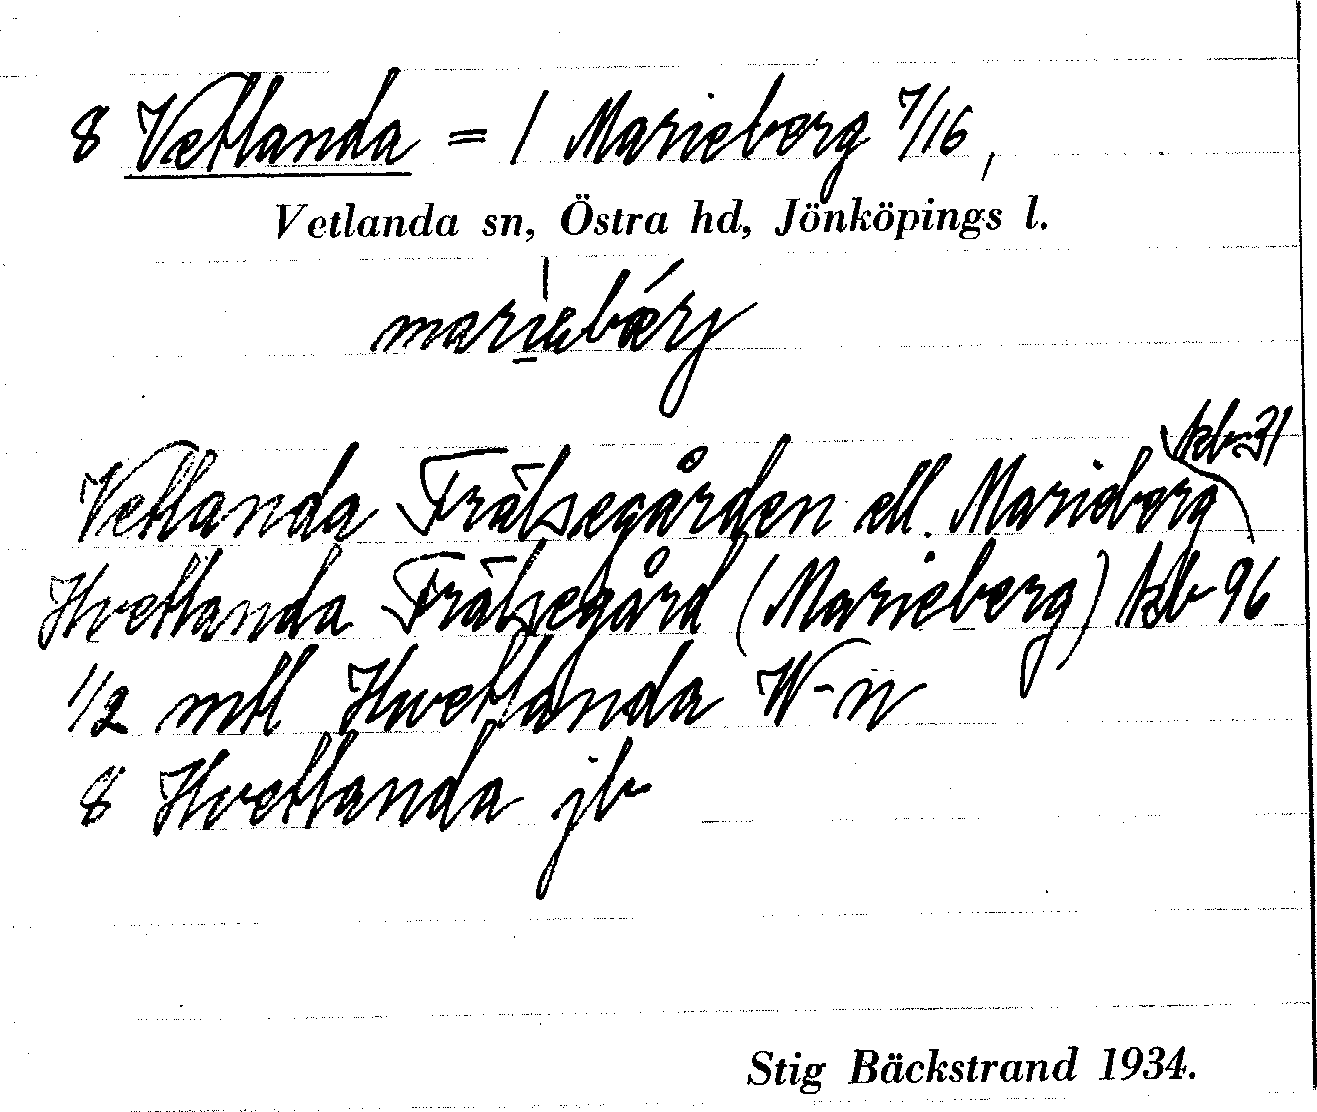 8 Vetlanda = 1 Marieberg 7/16,
Vetlanda sn, Östra hd, Jönköpings l.
kb 31
Vetlanda Frälsegården ell. Marieberg
Hvetlanda Frälsegård (Marieberg) kb 96
1/2 mtl Hwetlanda W-n
8 Hvetlanda jb
Stig Bäckstrand 1934.